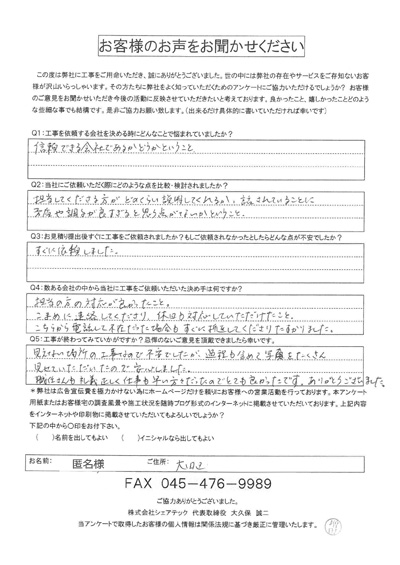 お客様のお声をお聞かせください
この度は弊社に工事をご用命いただき、誠にありがとうございました。世の中には弊社の存在やサービスをご存知ないお客
様が沢山いらっしゃいます。その方たちに弊社をよく知っていただくためのアンケートにご協力いただけるでしょうか? お客様
のご意見をお聞かせいただき今後の活動に反映させていただきたいと考えております。良かったこと、嬉しかったことどのよう
な些細な事でも結構です。是非ご協力お願い致します。(出来るだけ具体的に書いていただければ幸いです)
Q1:工事を依頼する会社を決める時にどんなことで悩まれていましたか?
信頼できる会社であるかどうかということ
Q2:当社にご依頼いただく際にどのような点を比較・検討されましたか?
担当してくださる方がどのくらい説明してくれるか、話されていることに
矛盾や調子が良すぎると思う点がないかということ。
Q3:お見積り提出後すぐに工事をご依頼されましたか?もしご依頼されなかったとしたらどんな点が不安でしたか?
すぐに依頼しました。
Q4:数ある会社の中から当社に工事をご依頼いただいた決め手は何ですか?
担当の方の対応が良かったこと。
こまめに連絡してくださり、休日も対応していただけたこと。
こちらから電話して不在だった場合もすぐに折返してくださりたすかりました。
Q5:工事が終わってみていかがですか?忌憚のないご意見を頂戴できましたら幸いです。
見えない場所の工事なので不安でしたが、過程も含めて写真をたくさん
見せていただいたので安心しました。
職人さんも礼義正しく仕事も早い方々だったのでとても良かったです。ありがとうございました。
*弊社は広告宣伝費を極力かけない為にホームページだけを頼りにお客様への営業活動を行っております。本アンケート
用紙またはお客様宅の調査風景や施工状況を随時ブログ形式のインターネットに掲載させていただいております。上記内容
をインターネットや印刷物に掲載させていただいてもよろしいでしょうか?
下記の中から〇印をお付下さい。
( )名前を出してもよい ( )イニシャルなら出してもよい
お名前: 匿名様 ご住所:
FAX 045-476-9989
ご協力ありがとうございました。
株式会社シェアテック 代表取締役 大久保 誠二
当アンケートで取得したお客様の個人情報は関係法規に基づき厳正に管理いたします。